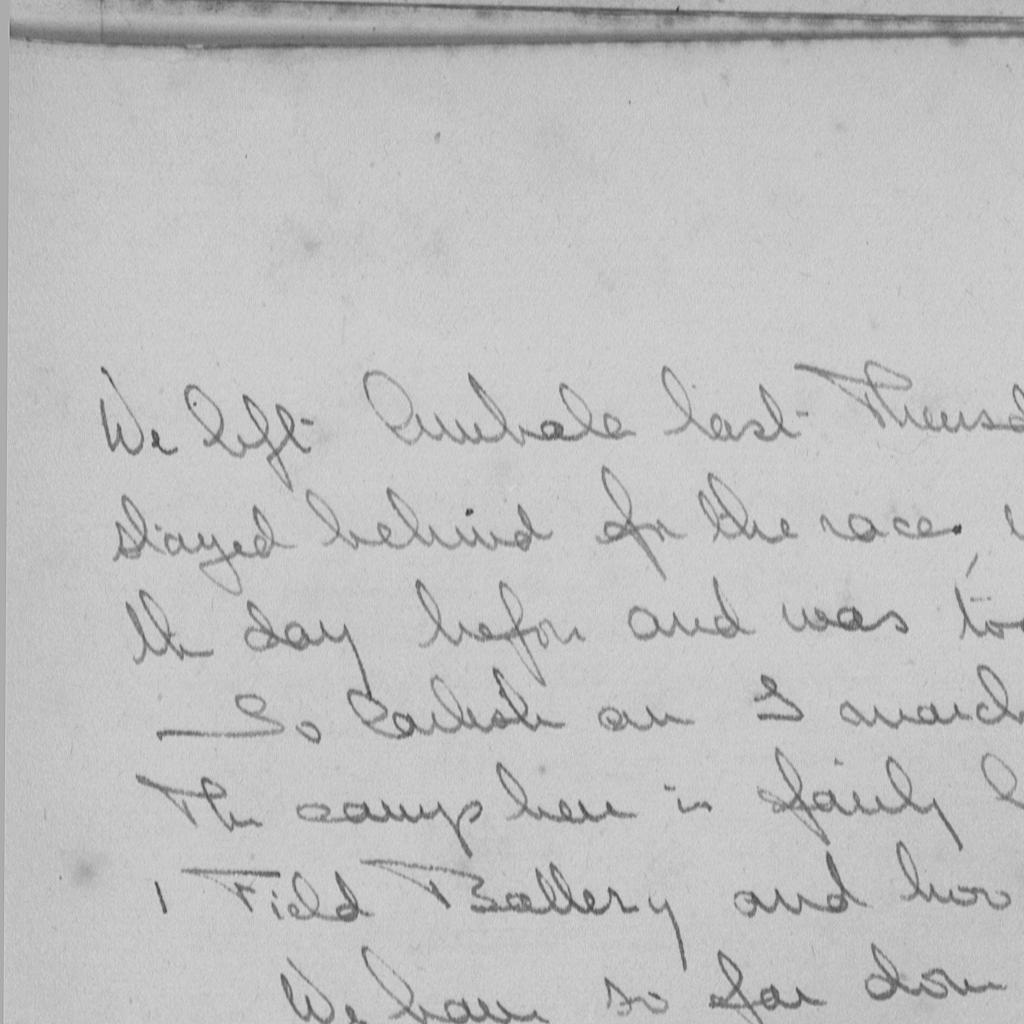 We left Umbala last Thursd
stayed behind for the race
the day before and was to
So Carlisle an I march
The camp here is fairly
1 Field Battery and
We have so far done